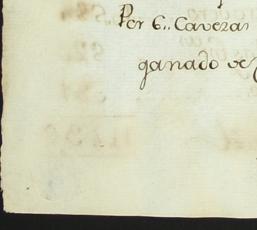 Por 6,, Cavezas
ganado de